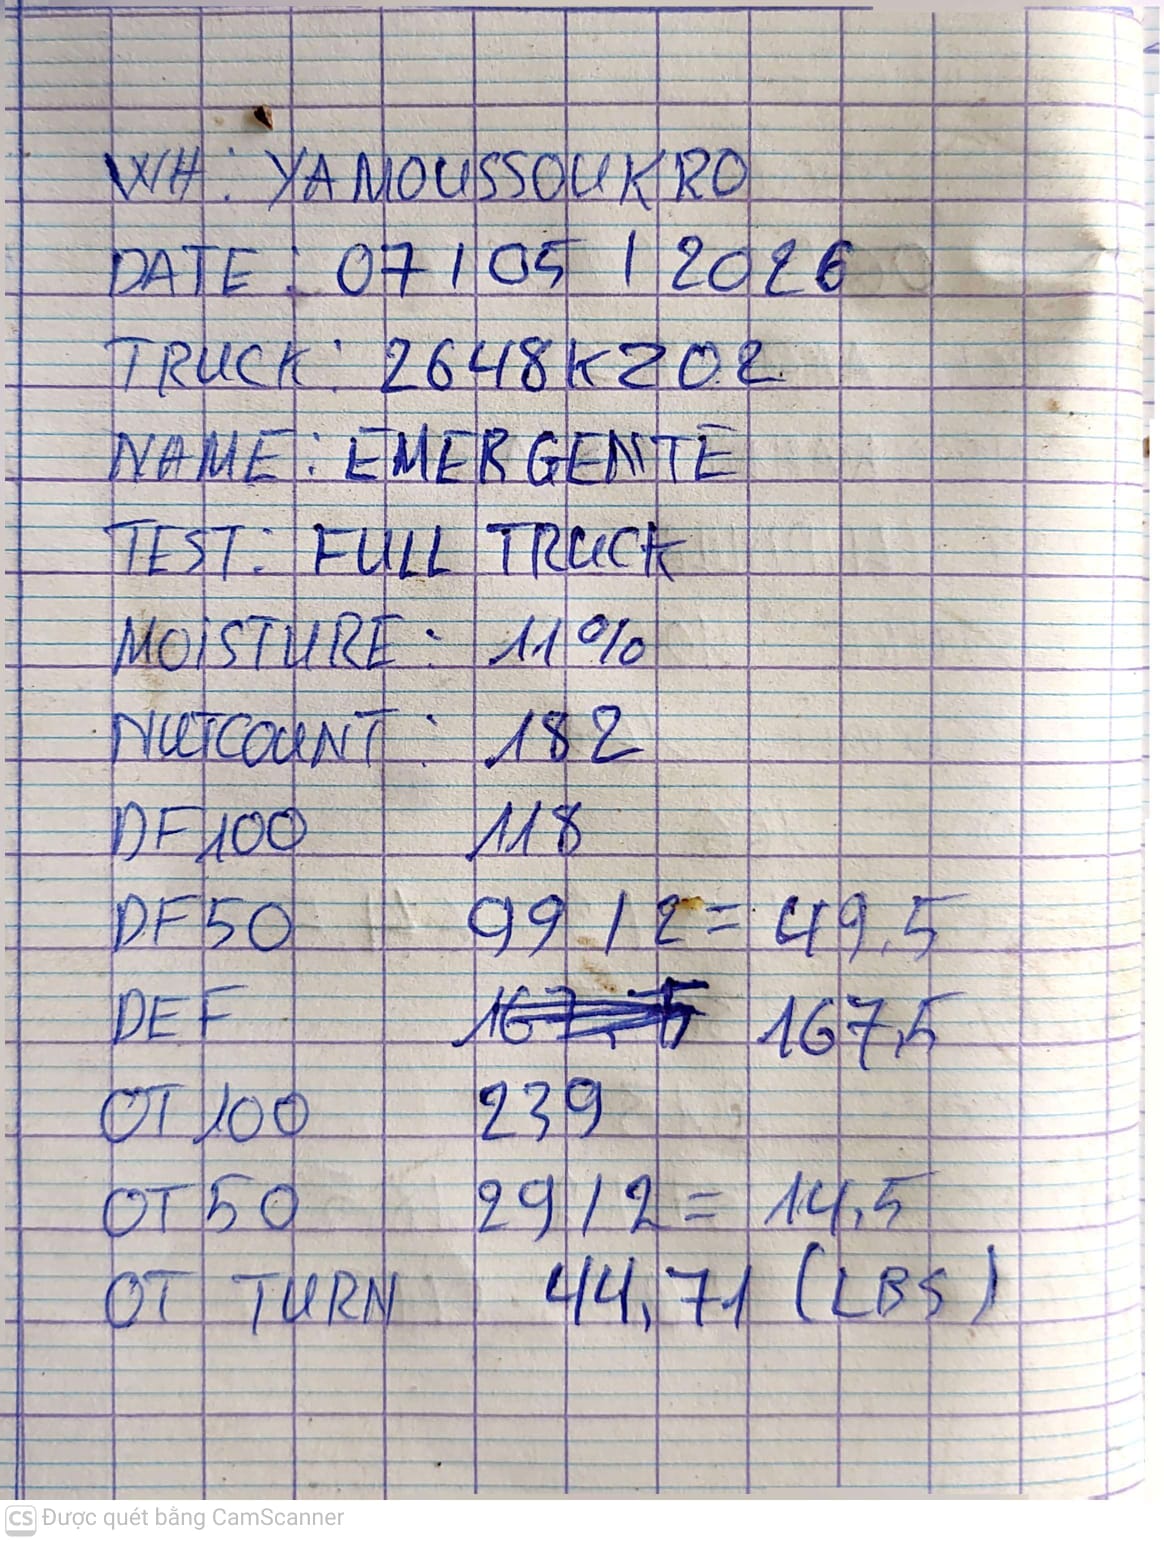 WH: YAMOUSSOUKRO
DATE: 07/05/2026
TRUCK: 2648KZ02
NAME: EMERGENTE
TEST: FULL TRUCK
MOISTURE: 11%
NUTCOUNT: 182
DF100 118
DF50 99/2= 49,5
DEF 167,5 167,5
OT100 239
OT50 29/2= 14,5
OT TURN 44,71 (LBS)
CS Được quét bằng CamScanner